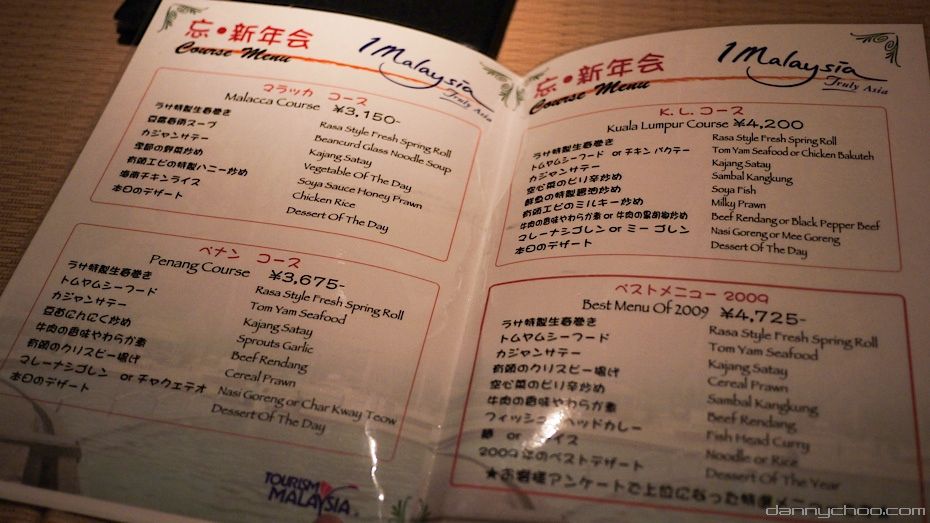 忘・新年会
Course Menu
1Malaysia
Truly Asia
マラッカ コース
Malacca Course ¥3,150-
ラサ特製生春巻き Rasa Style Fresh Spring Roll
豆腐春雨スープ Beancurd Glass Noodle Soup
カジャンサテー Kajang Satay
季節の野菜炒め Vegetable Of The Day
有頭エビの特製ハニー炒め Soya Sauce Honey Prawn
海南チキンライス Chicken Rice
本日のデザート Dessert Of The Day
ペナン コース
Penang Course ¥3,675-
ラサ特製生春巻き Rasa Style Fresh Spring Roll
トムヤムシーフード Tom Yam Seafood
カジャンサテー Kajang Satay
豆苗にんにく炒め Sprouts Garlic
牛肉の香味やわらか煮 Beef Rendang
有頭のクリスピー揚げ Cereal Prawn
マレーナシゴレン orチャクェテオ Nasi Goreng or Char Kway Teow
本日のデザート Dessert Of The Day
TOURISM
MALAYSIA
忘・新年会
Course Menu
1Malaysia
Truly Asia
K.L.コース
Kuala Lumpur Course ¥4,200
ラサ特製生春巻き Rasa Style Fresh Spring Roll
トムヤムシーフード or チキン バクテー Tom Yam Seafood or Chicken Bakuteh
カジャンサテー Kajang Satay
空心菜のピリ辛炒め Sambal Kangkung
鮮魚の特製醤油炒め Soya Fish
有頭エビのミルキー炒め Milky Prawn
牛肉の香味やわらか煮 or 牛肉の黒胡椒炒め Beef Rendang or Black Pepper Beef
マレーナシゴレン or ミー ゴレン Nasi Goreng or Mee Goreng
本日のデザート Dessert Of The Day
ベストメニュー 2009
Best Menu Of 2009 ¥4,725-
ラサ特製生春巻き Rasa Style Fresh Spring Roll
トムヤムシーフード Tom Yam Seafood
カジャンサテー Kajang Satay
有頭のクリスピー揚げ Cereal Prawn
空心菜のピリ辛炒め Sambal Kangkung
牛肉の香味やわらか煮 Beef Rendang
フィッシュヘッドカレー Fish Head Curry
麺 or ライス Noodle or Rice
2009年のベストデザート Dessert Of The Year
★お客様アンケートで上位になった特選メニュー
dannychoo.com